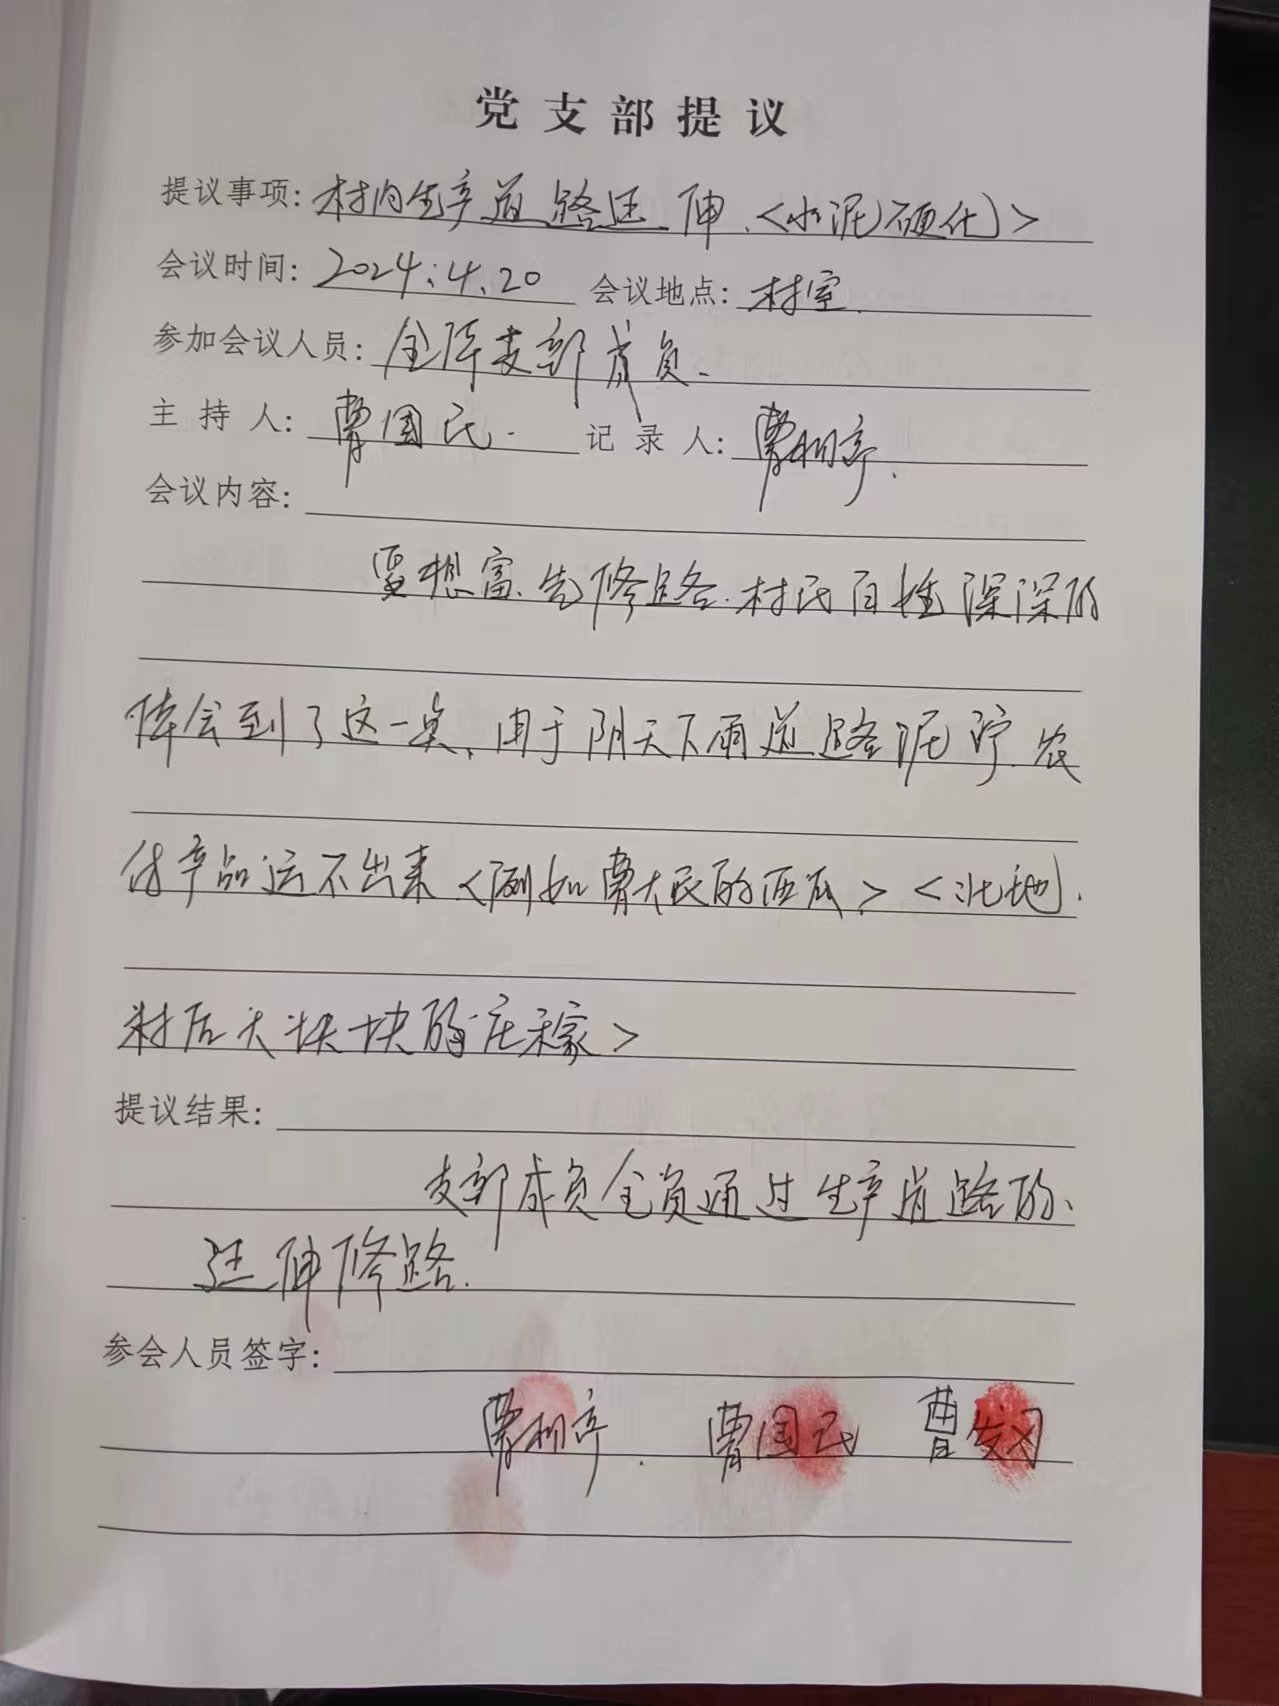 党支部提议
提议事项: 村内生产道路延伸.<水泥硬化>
会议时间: 2024.4.20 会议地点: 村室.
参加会议人员: 全体支部成员.
主持人: 曹国民. 记录人: 曹相亭.
会议内容:
要想富.先修路.村民百姓深深的
体会到了这一点,由于阴天下雨道路泥泞.农
付产品运不出来<例如曹大民的西瓜><北地.
村后大块块的庄稼>
提议结果:
支部成员全员通过生产道路的、
延伸修路.
参会人员签字:
曹相亭. 曹国民 曹